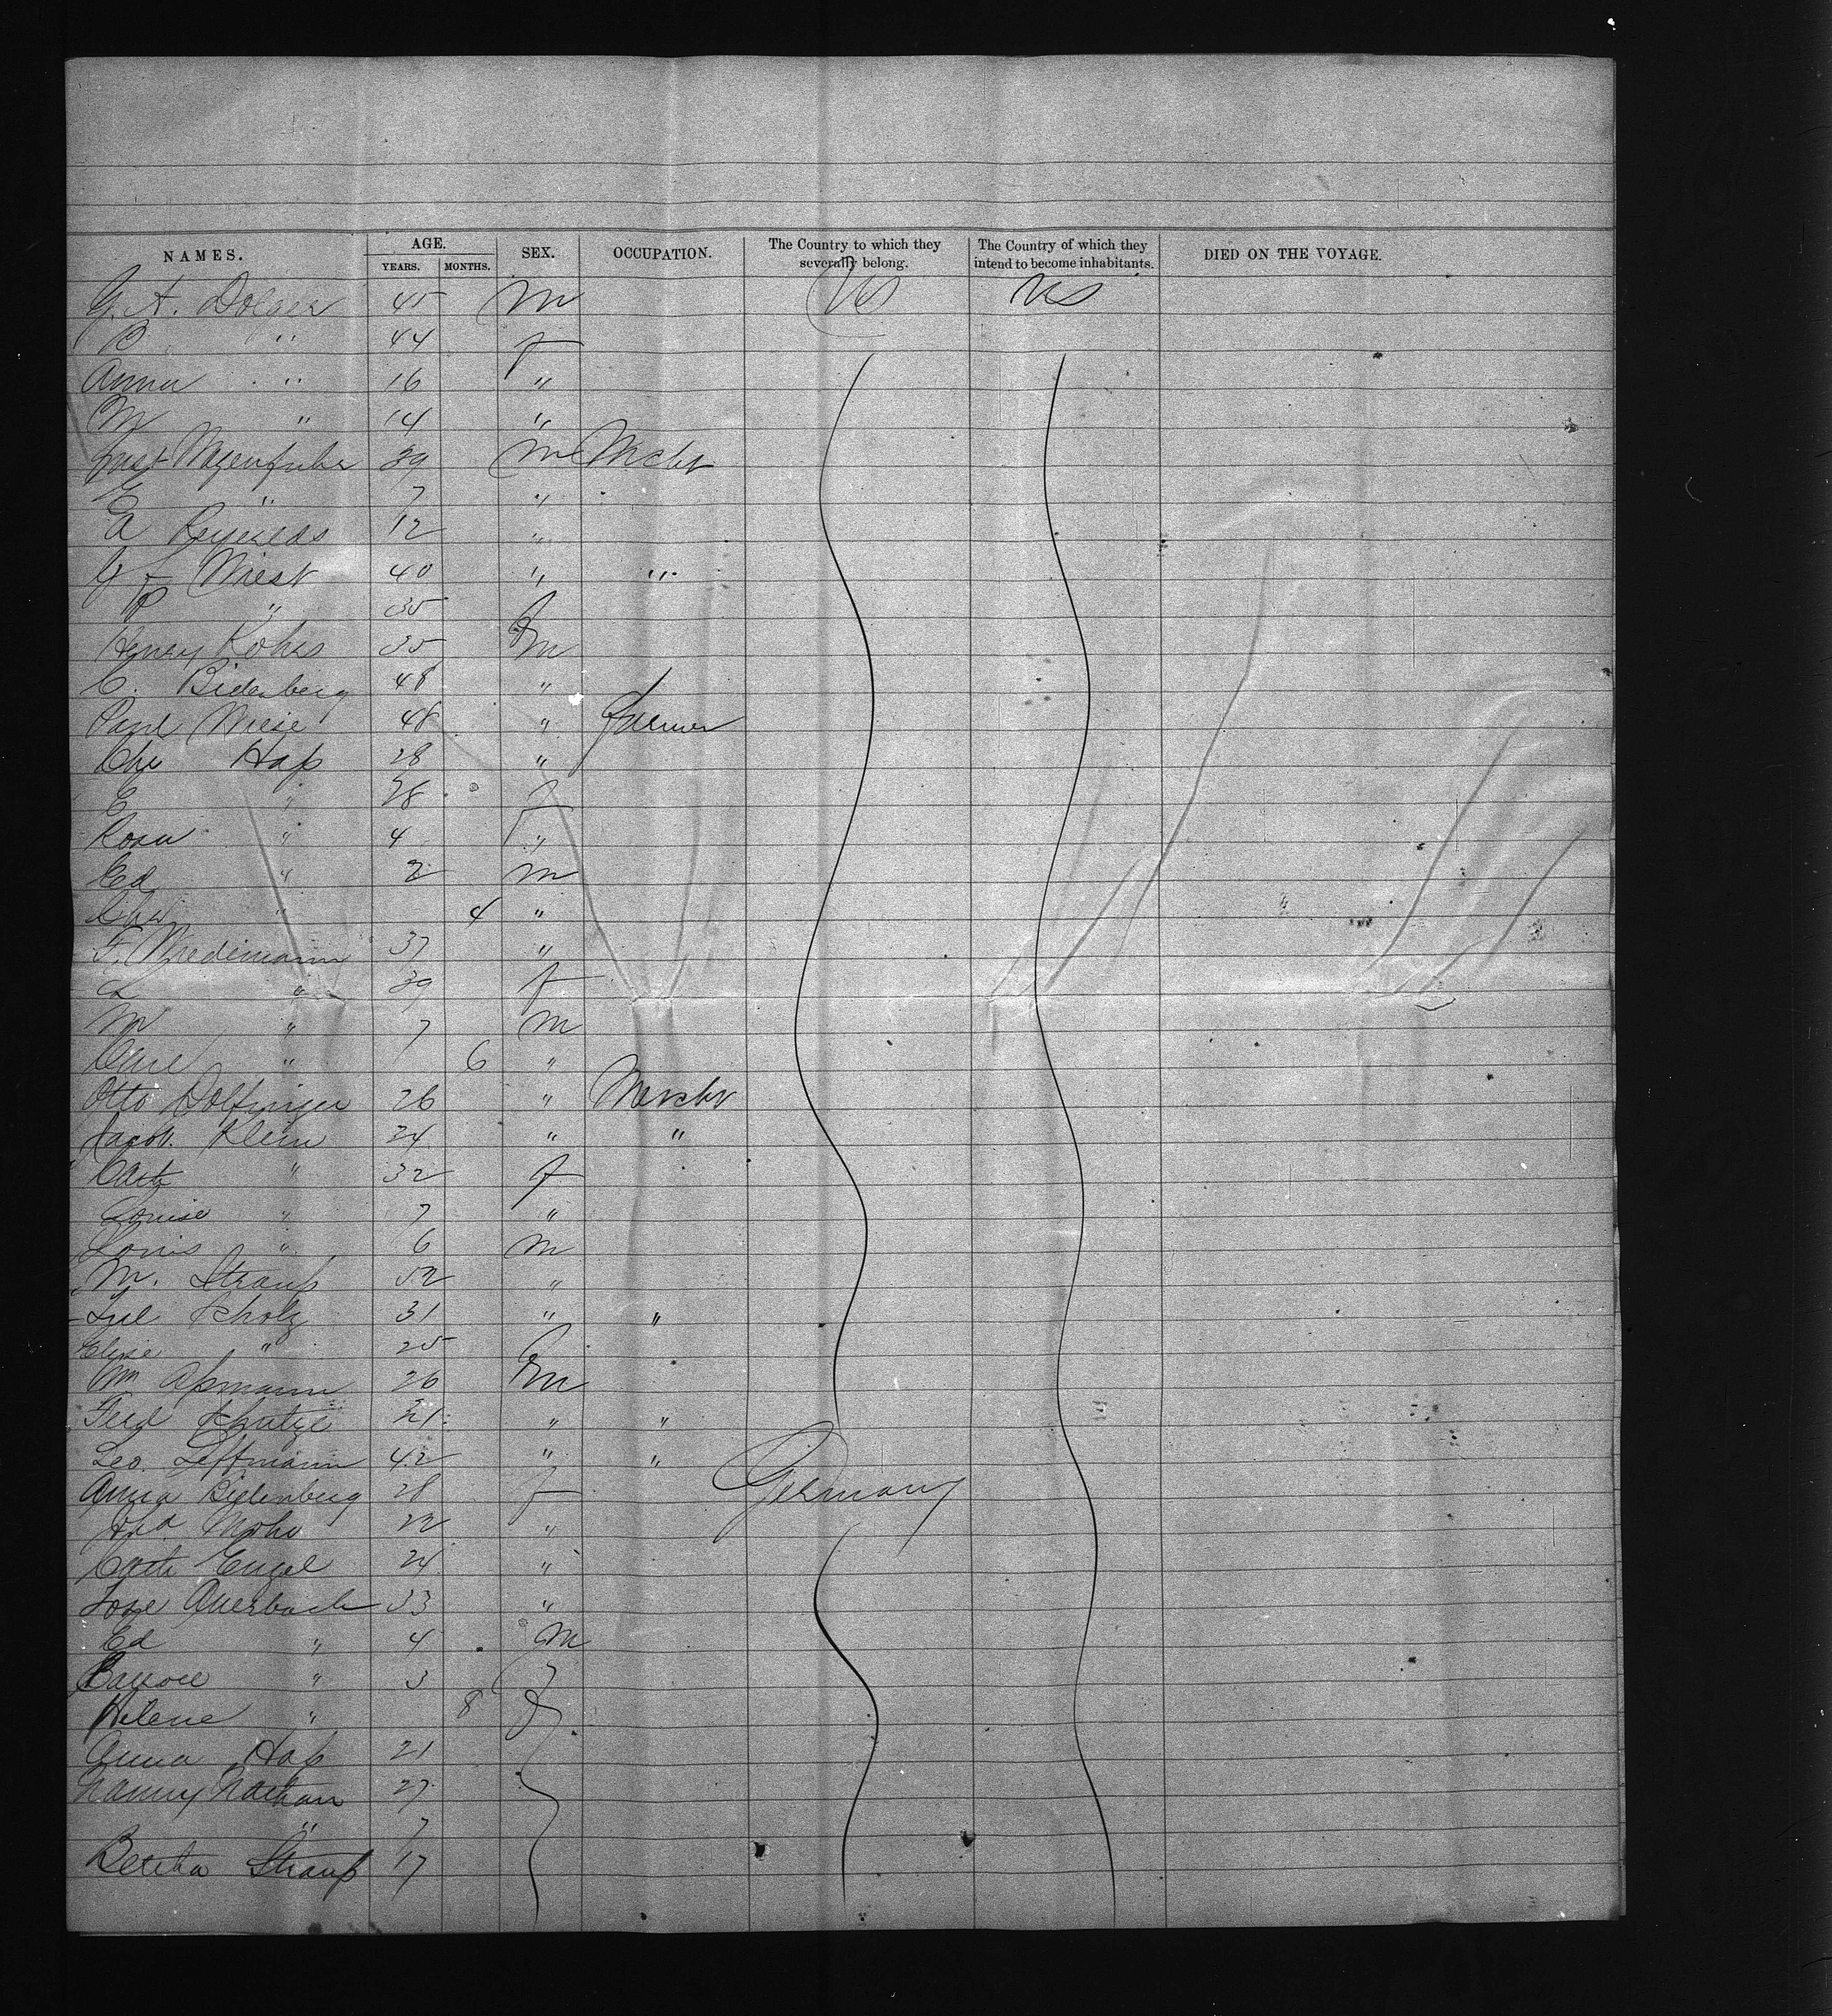 NAMES. AGE. YEARS. MONTHS. SEX. OCCUPATION. The Country to which they severally belong. The Country of which they intend to become inhabitants. DIED ON THE VOYAGE.
G. A. Dolger 45 m US US
B " 44 f
Anna " 16 "
M " 14 "
39 m Mcht
E " 7 "
A 12 "
G F Wiest 40 " "
P " 35 f
Henry Kohrs 35 m
C. Bidenberg 48 "
Paul Wiese 48 " Farmer
Chs Haß 28 "
E " 28 f
Rosa " 4 "
Ed " 2 m
Chs " 4 "
F. Wredemann 37 "
L " 39 f
M " 7 m
Carl " 6 "
Otto Dolfinger 26 " Mercht
Jacob Klein 24 " "
Cath " 32 f
Louise " 7 "
Louis " 6 m
M. Strauß 52 "
Jul Scholz 31 " "
Elise " 25 f
Wm Aßmann 26 m
Ferd Schulze 21 " "
Leo. Leffmann 42 " " Germany
Anna Bidenberg 28 f
22 "
Cath Engel 24 "
Auerbach 33 "
Ed " 4 m
" 3
Helene " 8 f
Anna Haß 21
Nanny Nathan 27
" 7
Bertha Strauß 17